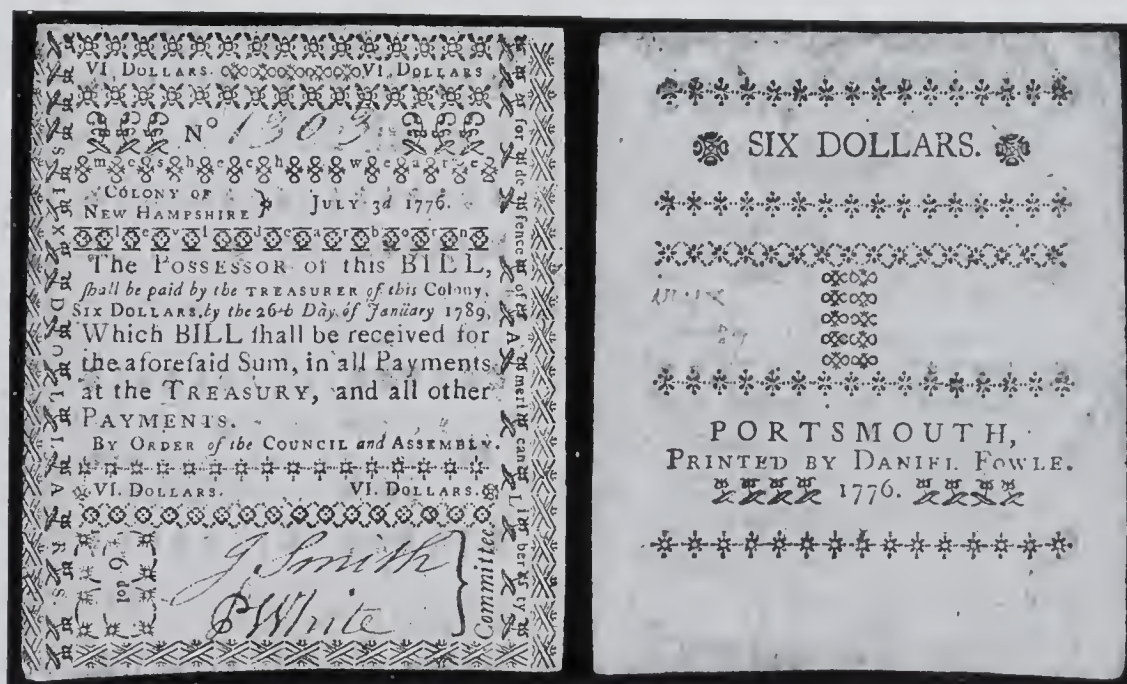 VI. DOLLARS. VI. DOLLARS
No 1303
m e s h e c h w e a r e
COLONY OF
NEW HAMPSHIRE } JULY 3d 1776.
l e v i d e a r b o r n
The POSSESSOR of this BILL,
ſhall be paid by the TREASURER of this Colony,
SIX DOLLARS, by the 26th Day of January 1789,
Which BILL ſhall be received for
the aforeſaid Sum, in all Payments
at the TREASURY, and all other
PAYMENTS.
BY ORDER of the COUNCIL and ASSEMBLY.
VI. DOLLARS. VI. DOLLARS.
6 dol
J Smith
P White
} Committee
SIX DOLLARS
for de fence of A meri can L i ber ty
SIX DOLLARS.
PORTSMOUTH,
PRINTED BY DANIEL FOWLE.
1776.